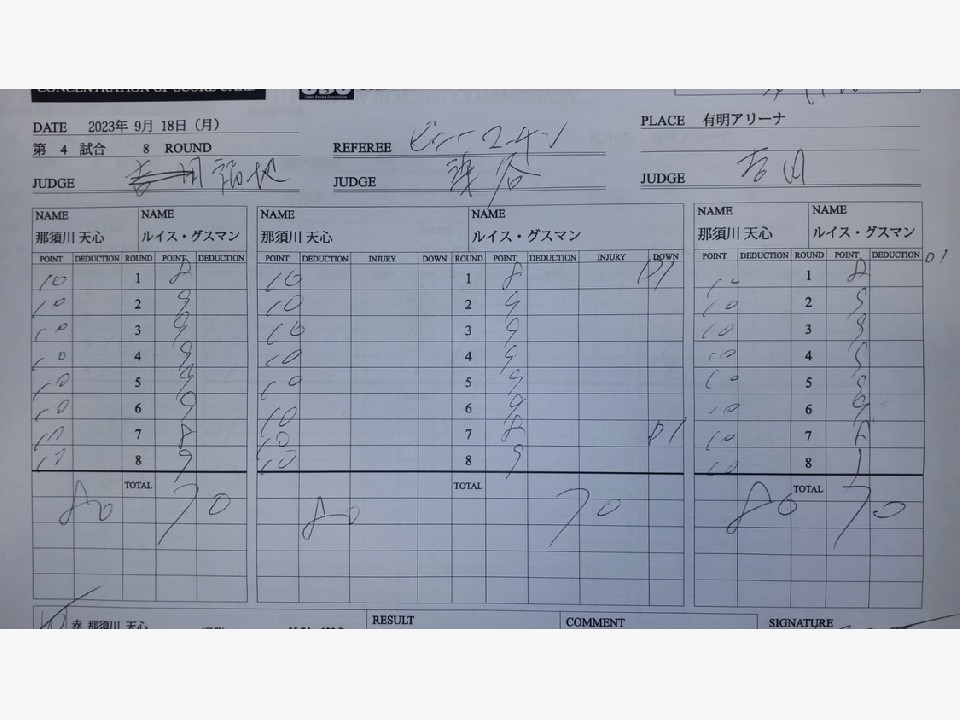 CONCENTRATION OF SCORE CARD
DATE 2023年 9月 18日（月） PLACE 有明アリーナ
第 4 試合 8 ROUND REFEREE ビニー マーチン
JUDGE JUDGE 染谷 JUDGE 吉田
NAME NAME NAME NAME NAME NAME
那須川 天心 ルイス・グスマン 那須川 天心 ルイス・グスマン 那須川 天心 ルイス・グスマン
POINT DEDUCTION ROUND POINT DEDUCTION POINT DEDUCTION INJURY DOWN ROUND POINT DEDUCTION INJURY DOWN POINT DEDUCTION ROUND POINT DEDUCTION D1
10 1 8 10 1 8 D1 10 1 8
10 2 9 10 2 9 10 2 9
10 3 9 10 3 9 10 3 9
10 4 9 10 4 9 10 4 9
10 5 9 10 5 9 10 5 9
10 6 9 10 6 9 10 6 9
10 7 8 10 7 8 D1 10 7 8
10 8 9 10 8 9 10 8 9
TOTAL TOTAL TOTAL
80 70 80 70 80 70
赤 那須川 天心 RESULT COMMENT SIGNATURE